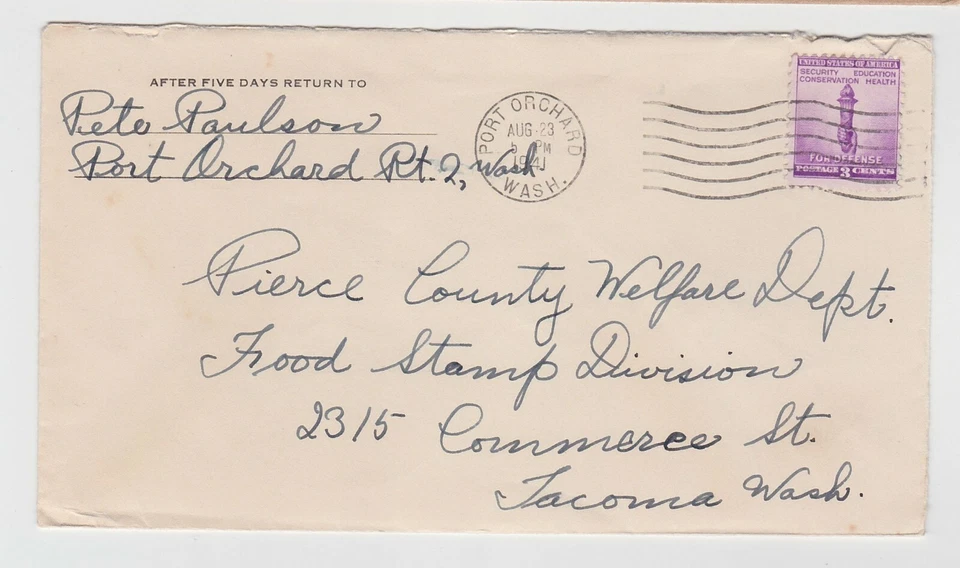 AFTER FIVE DAYS RETURN TO
Pete Paulson
Port Orchard Rt. 2, Wash
PORT ORCHARD
AUG 23
5 PM
1941
WASH.
UNITED STATES OF AMERICA
SECURITY EDUCATION
CONSERVATION HEALTH
FOR DEFENSE
POSTAGE 3 CENTS
Pierce County Welfare Dept.
Food Stamp Division
2315 Commerce St.
Tacoma Wash.